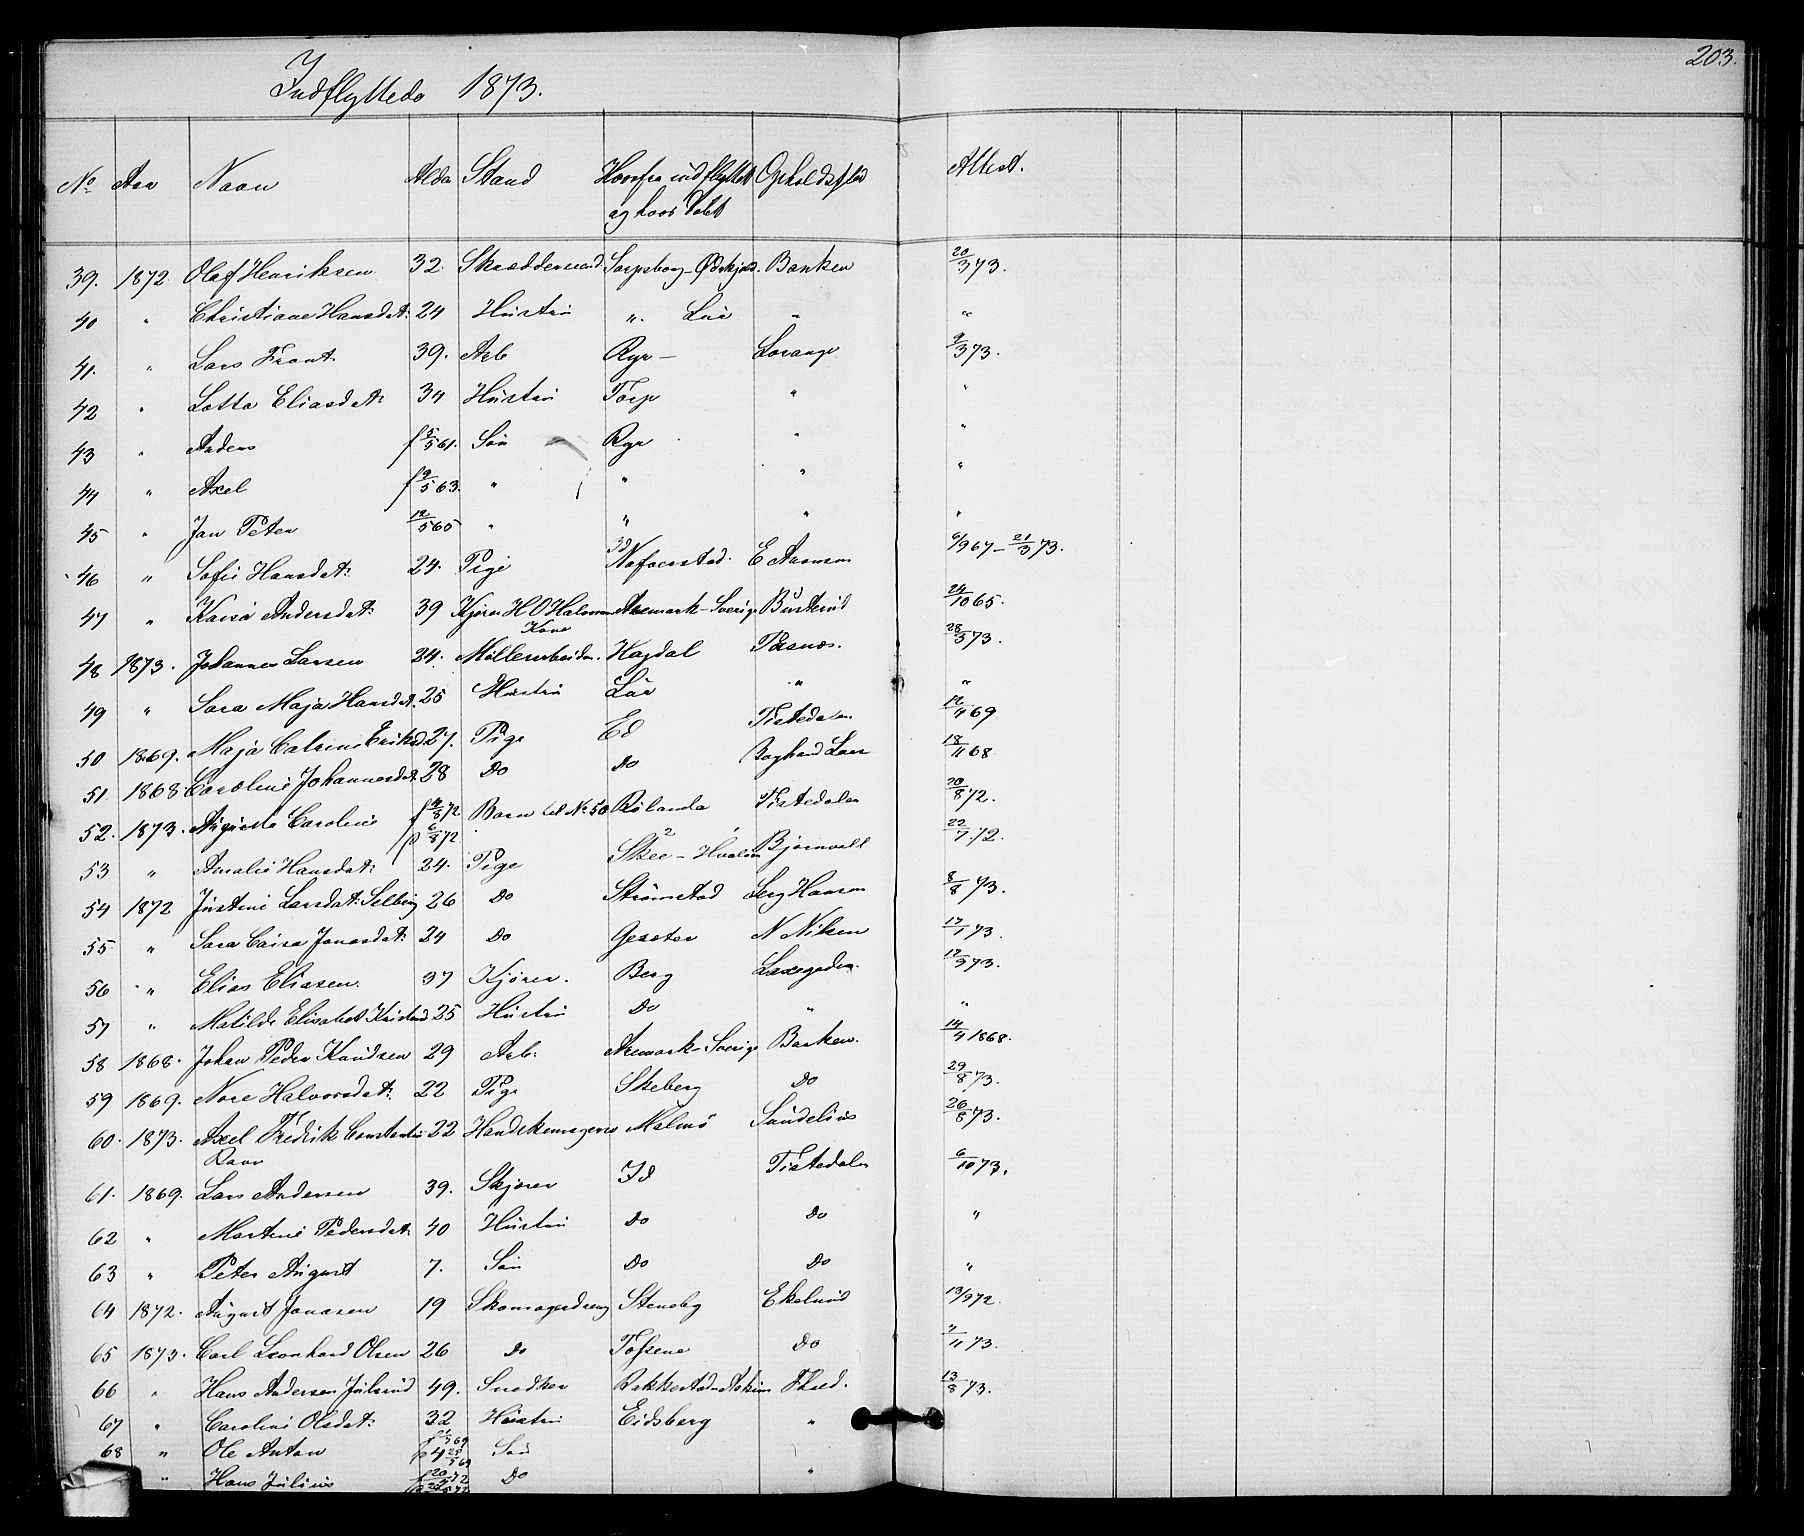 203.
Indflyttede 1873.
No Aar Navn Alder Stand Hvorfra indflyttet Opholdssted Attest.
og hvor døbt
39. 1872. Olaf Henriksen 32. Skræddersvend Sarpsborg - Ødskjøld. Banken 20/3 73.
40 " Christiane Hansdat: 24 Hustru " Lur " "
41. " Lars Front. 39. Arb Ryr - Lorange 9/3 73.
42 " Lotta Eliasdat: 34 Hustru Torp " "
43 " Anders f 5/5 61. Søn Ryr " "
44 " Axel f 9/5 63. " " " "
45 " Jan Peter 12/5 65 " " " "
46 " Sofie Hansdat: 24. Pige Id Nafverstad. E Aamson 6/9 67 - 21/3 73.
47 " Kaisa Andersdat: 39 Kjører H O Halvorsen Aremark - Sverige Busterud 24/10 65.
Kone
48 1873. Johannes Larsen 24. Møllerarbeider. Hogdal Pæsnæs. 28/3 73.
49 " Sara Maja Hansdat. 25 Hustru Lur " "
50 1869. Maja Catrine Eriksd 27. Pige Ed Tistedalen 12/4 69
51 1868. Caroline Johannesdat 28 Do Do Foghand Lars 18/11 68
52. 1873. Augusta Caroline f 14/5 72 Barn til No 50 Rölanda Tistedalen 20/8 72.
53 " Amalie Hansdat: 24. Pige Skee - Hvalen Bjørnvall 22/7 72.
54 1872 Justine Larsdat: Selberg 26 Do Strømstad Serg Hansen 8/8 73.
55 " Sara Caisa Jonasdat: 24 Do Gesäter N Nilsen 17/1 73.
56 " Elias Eliasen. 37 Kjører. Berg Laxegaden. 12/3 73.
57 " Matilde Elisabet Kristend 25 Hustru Do " "
58 1868. Johan Peder Knudsen 29 Arb. Aremark - Sverige Banken. 14/4 1868.
59 1869. Nore Halvorsdat: 22 Pige Skeberg Do 29/8 73.
60. 1873. Axel Fredrik Constantin 22 Handskemagersv Malmö Sundelius 26/8 73.
Ravn
61. 1869. Lars Andersen 39. Skjører Id Tistedalen 6/10 73.
62 " Martine Pedersdat: 40 Hustru Do Do "
63 " Peter August 7. Søn Do Do "
64 1872. August Jonasen 19 Skomagerdreng Steneby Ekelund 13/9 72.
65 1873. Carl Leonhard Olsen 26 Do Tøfsene Do 7/11 73.
66 " Hans Andersen Julsrud 49. Snedker Rakkestad - Askim Fhald. 13/8 73.
67 " Caroline Olsdat: 32 Hustru Eidsberg "
68 " Ole Anton Søn
" Hans Julius Do "